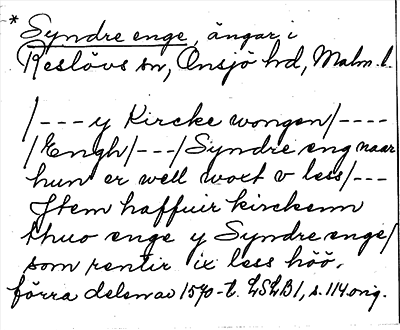 * Syndre enge, ängar i
Reslövs sn, Onsjö hd, Malm. l.
/--- y Kircke wongen/----
/Engh/---/Syndre eng naar
hun er well woxt v less/---
Jtem haffuir kirckenn
thuo enge y Syndre enge/
som rentir ix less höö.
förra delen av 1570-t. LSLB1, s. 114 orig.